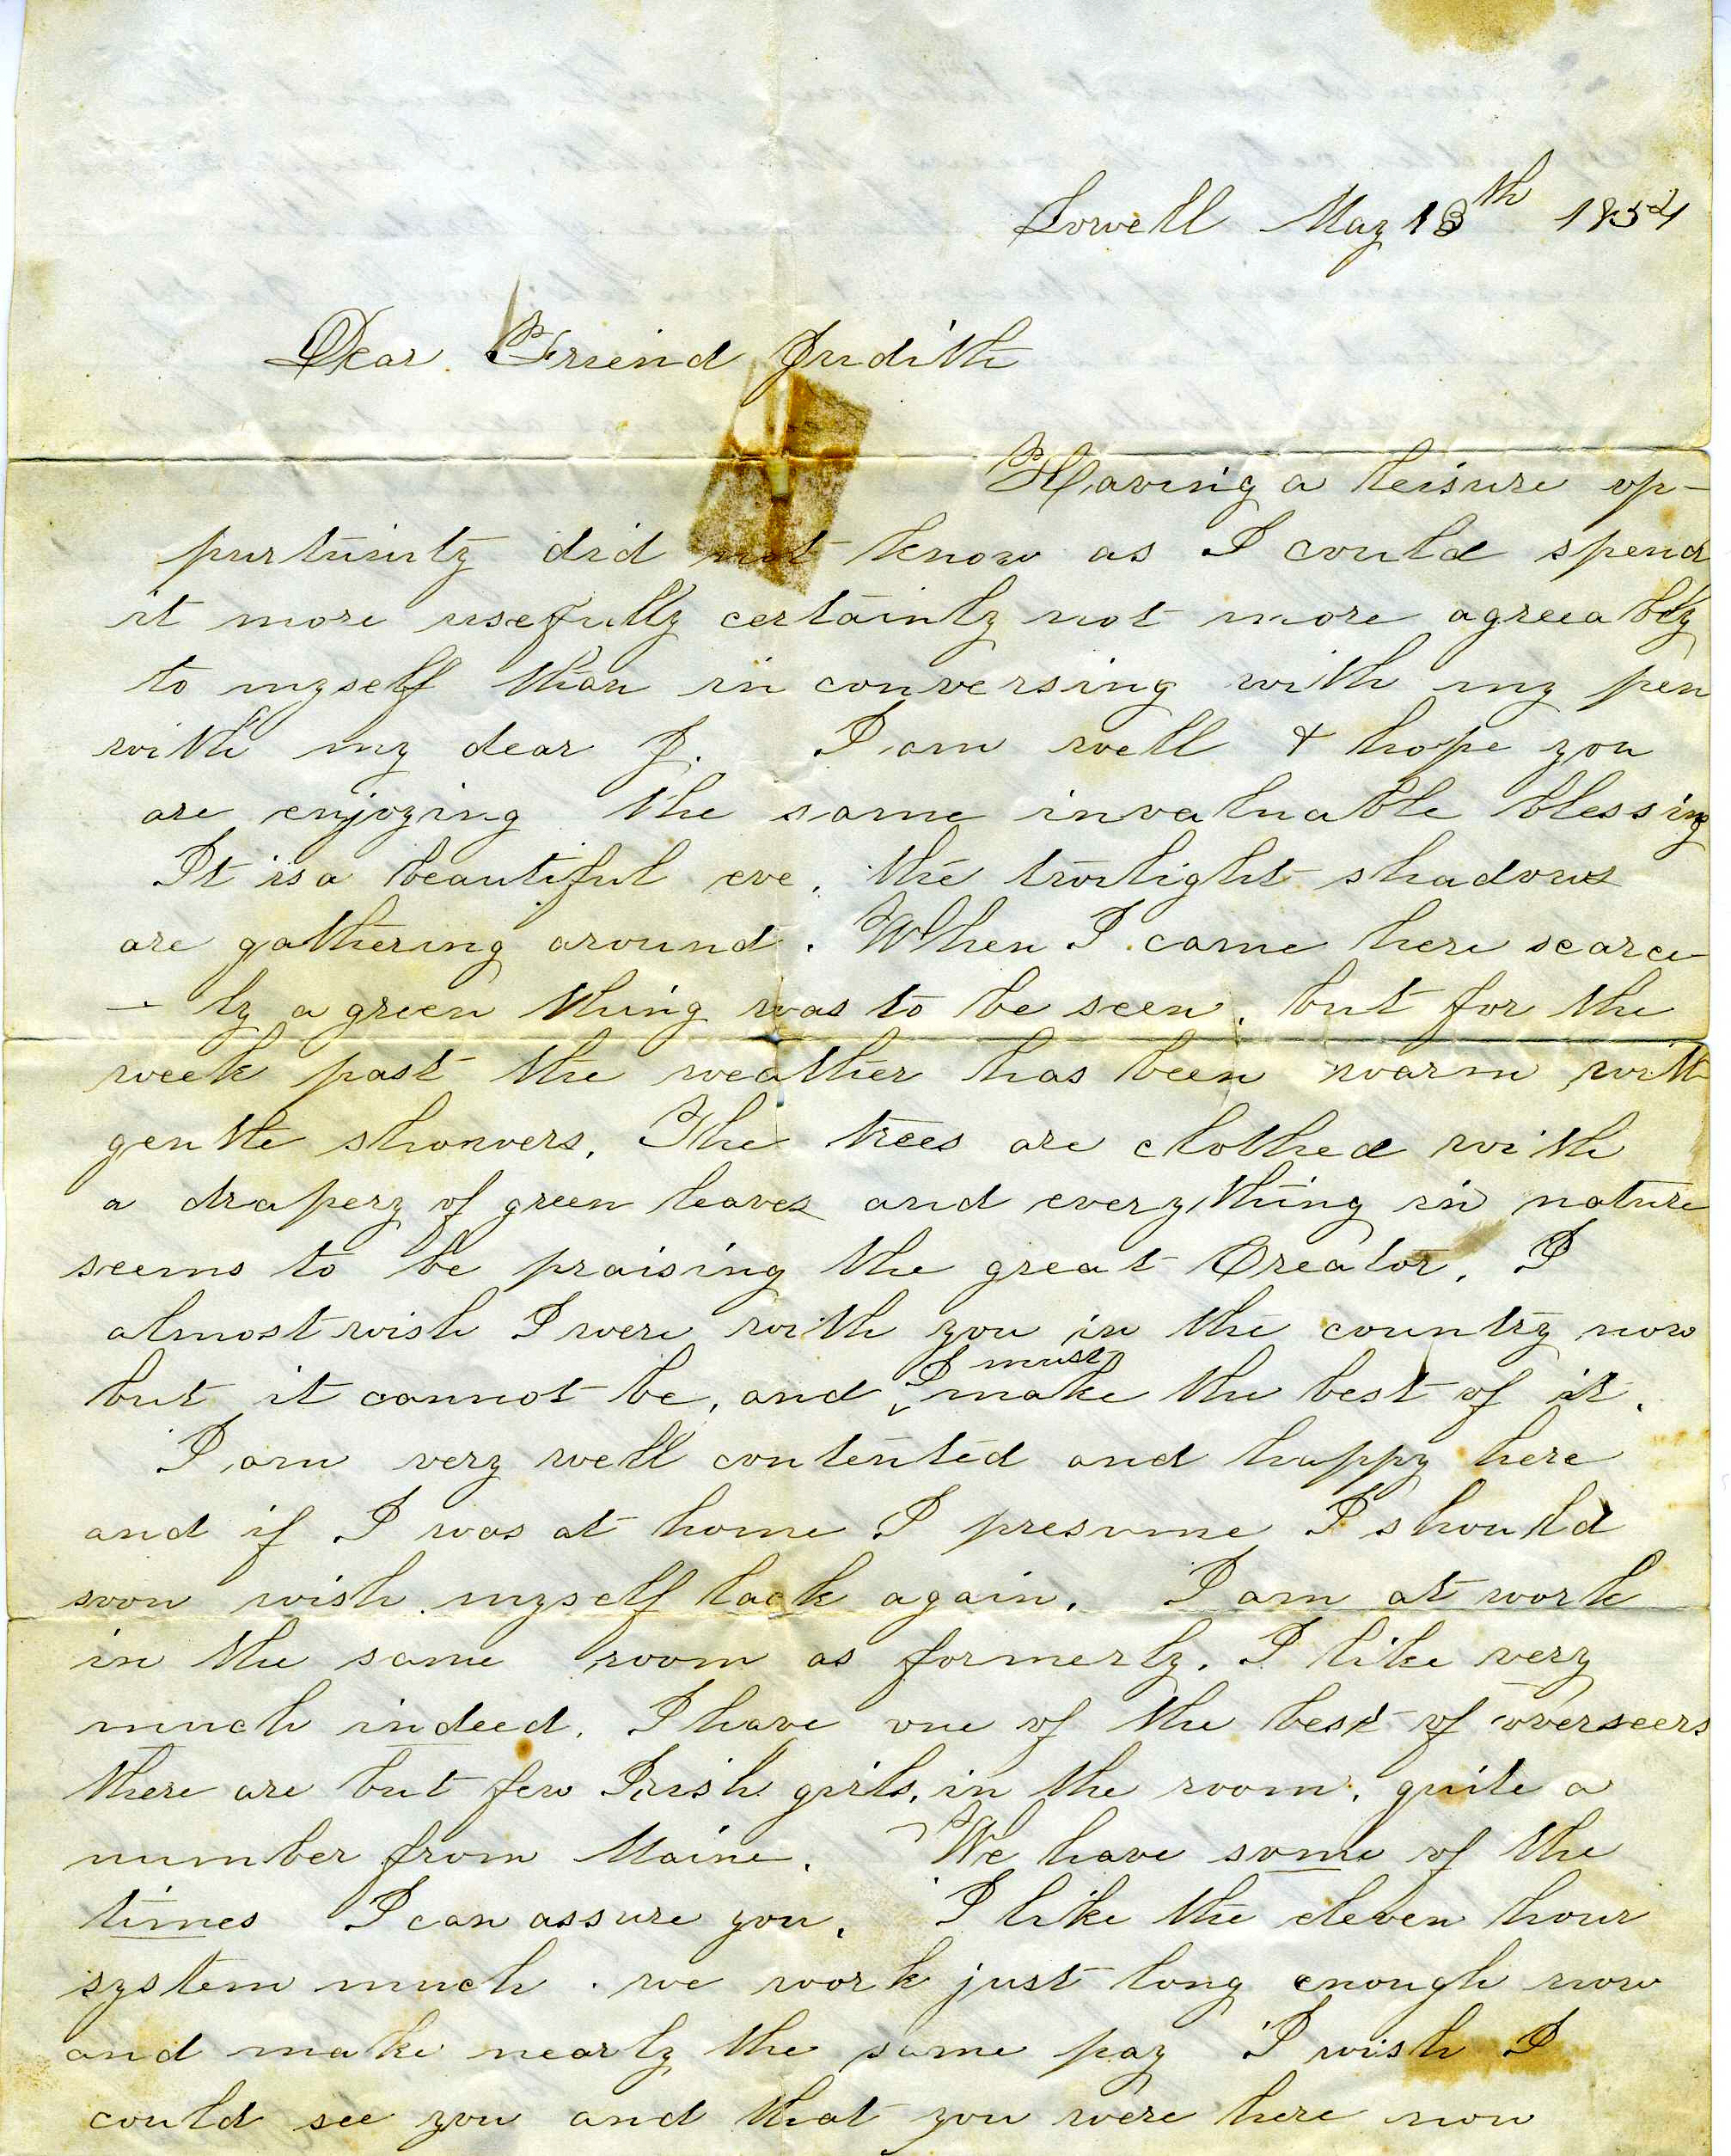 Lowell May 18th 1854
Dear Friend Judith
Having a leisure op-
purtunity did not know as I could spend
it more usefully certainly not more agreeably
to myself than in conversing with my pen
with my dear J. I am well & hope you
are enjoying the same invaluable blessing
It is a beautiful eve. the twilight shadows
are gathering around. When I came here scarce
- ly a green thing was to be seen, but for the
week past the weather has been warm with
gentle showers. The trees are clothed with
a drapery of green leaves and everything in nature
seems to be praising the great Creator. I
almost wish I were with you in the country now
but it cannot be, and I must make the best of it.
I am very well contented and happy here
and if I was at home I presume I should
soon wish myself back again. I am at work
in the same room as formerly. I like very
much indeed. I have one of the best of overseers
there are but few Irish girls, in the room, quite a
number from Maine. We have some of the
times I can assure you. I like the eleven hour
system much. we work just long enough now
and make nearly the same pay I wish I
could see you and that you were here now